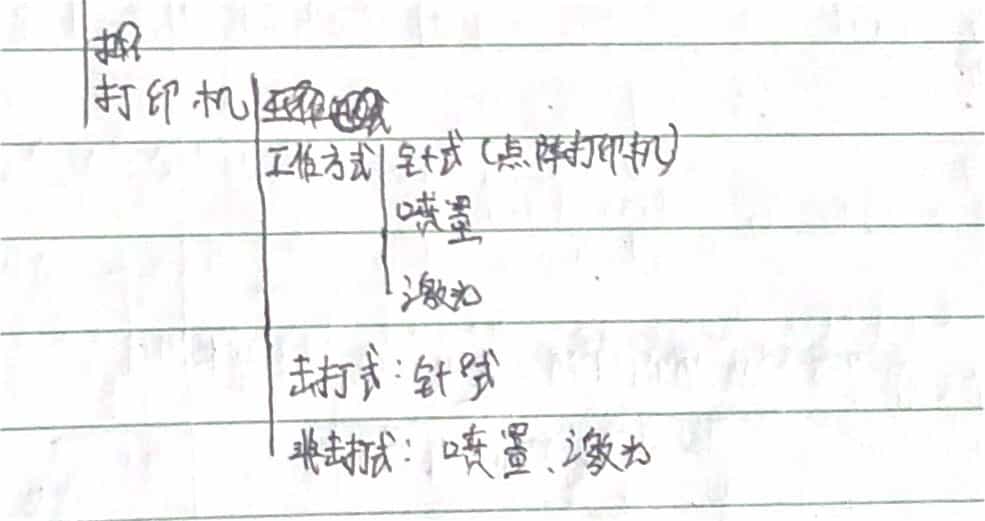 打印机
工作方式 针式（点阵打印机）
喷墨
激光
击打式：针式
非击打式：喷墨、激光